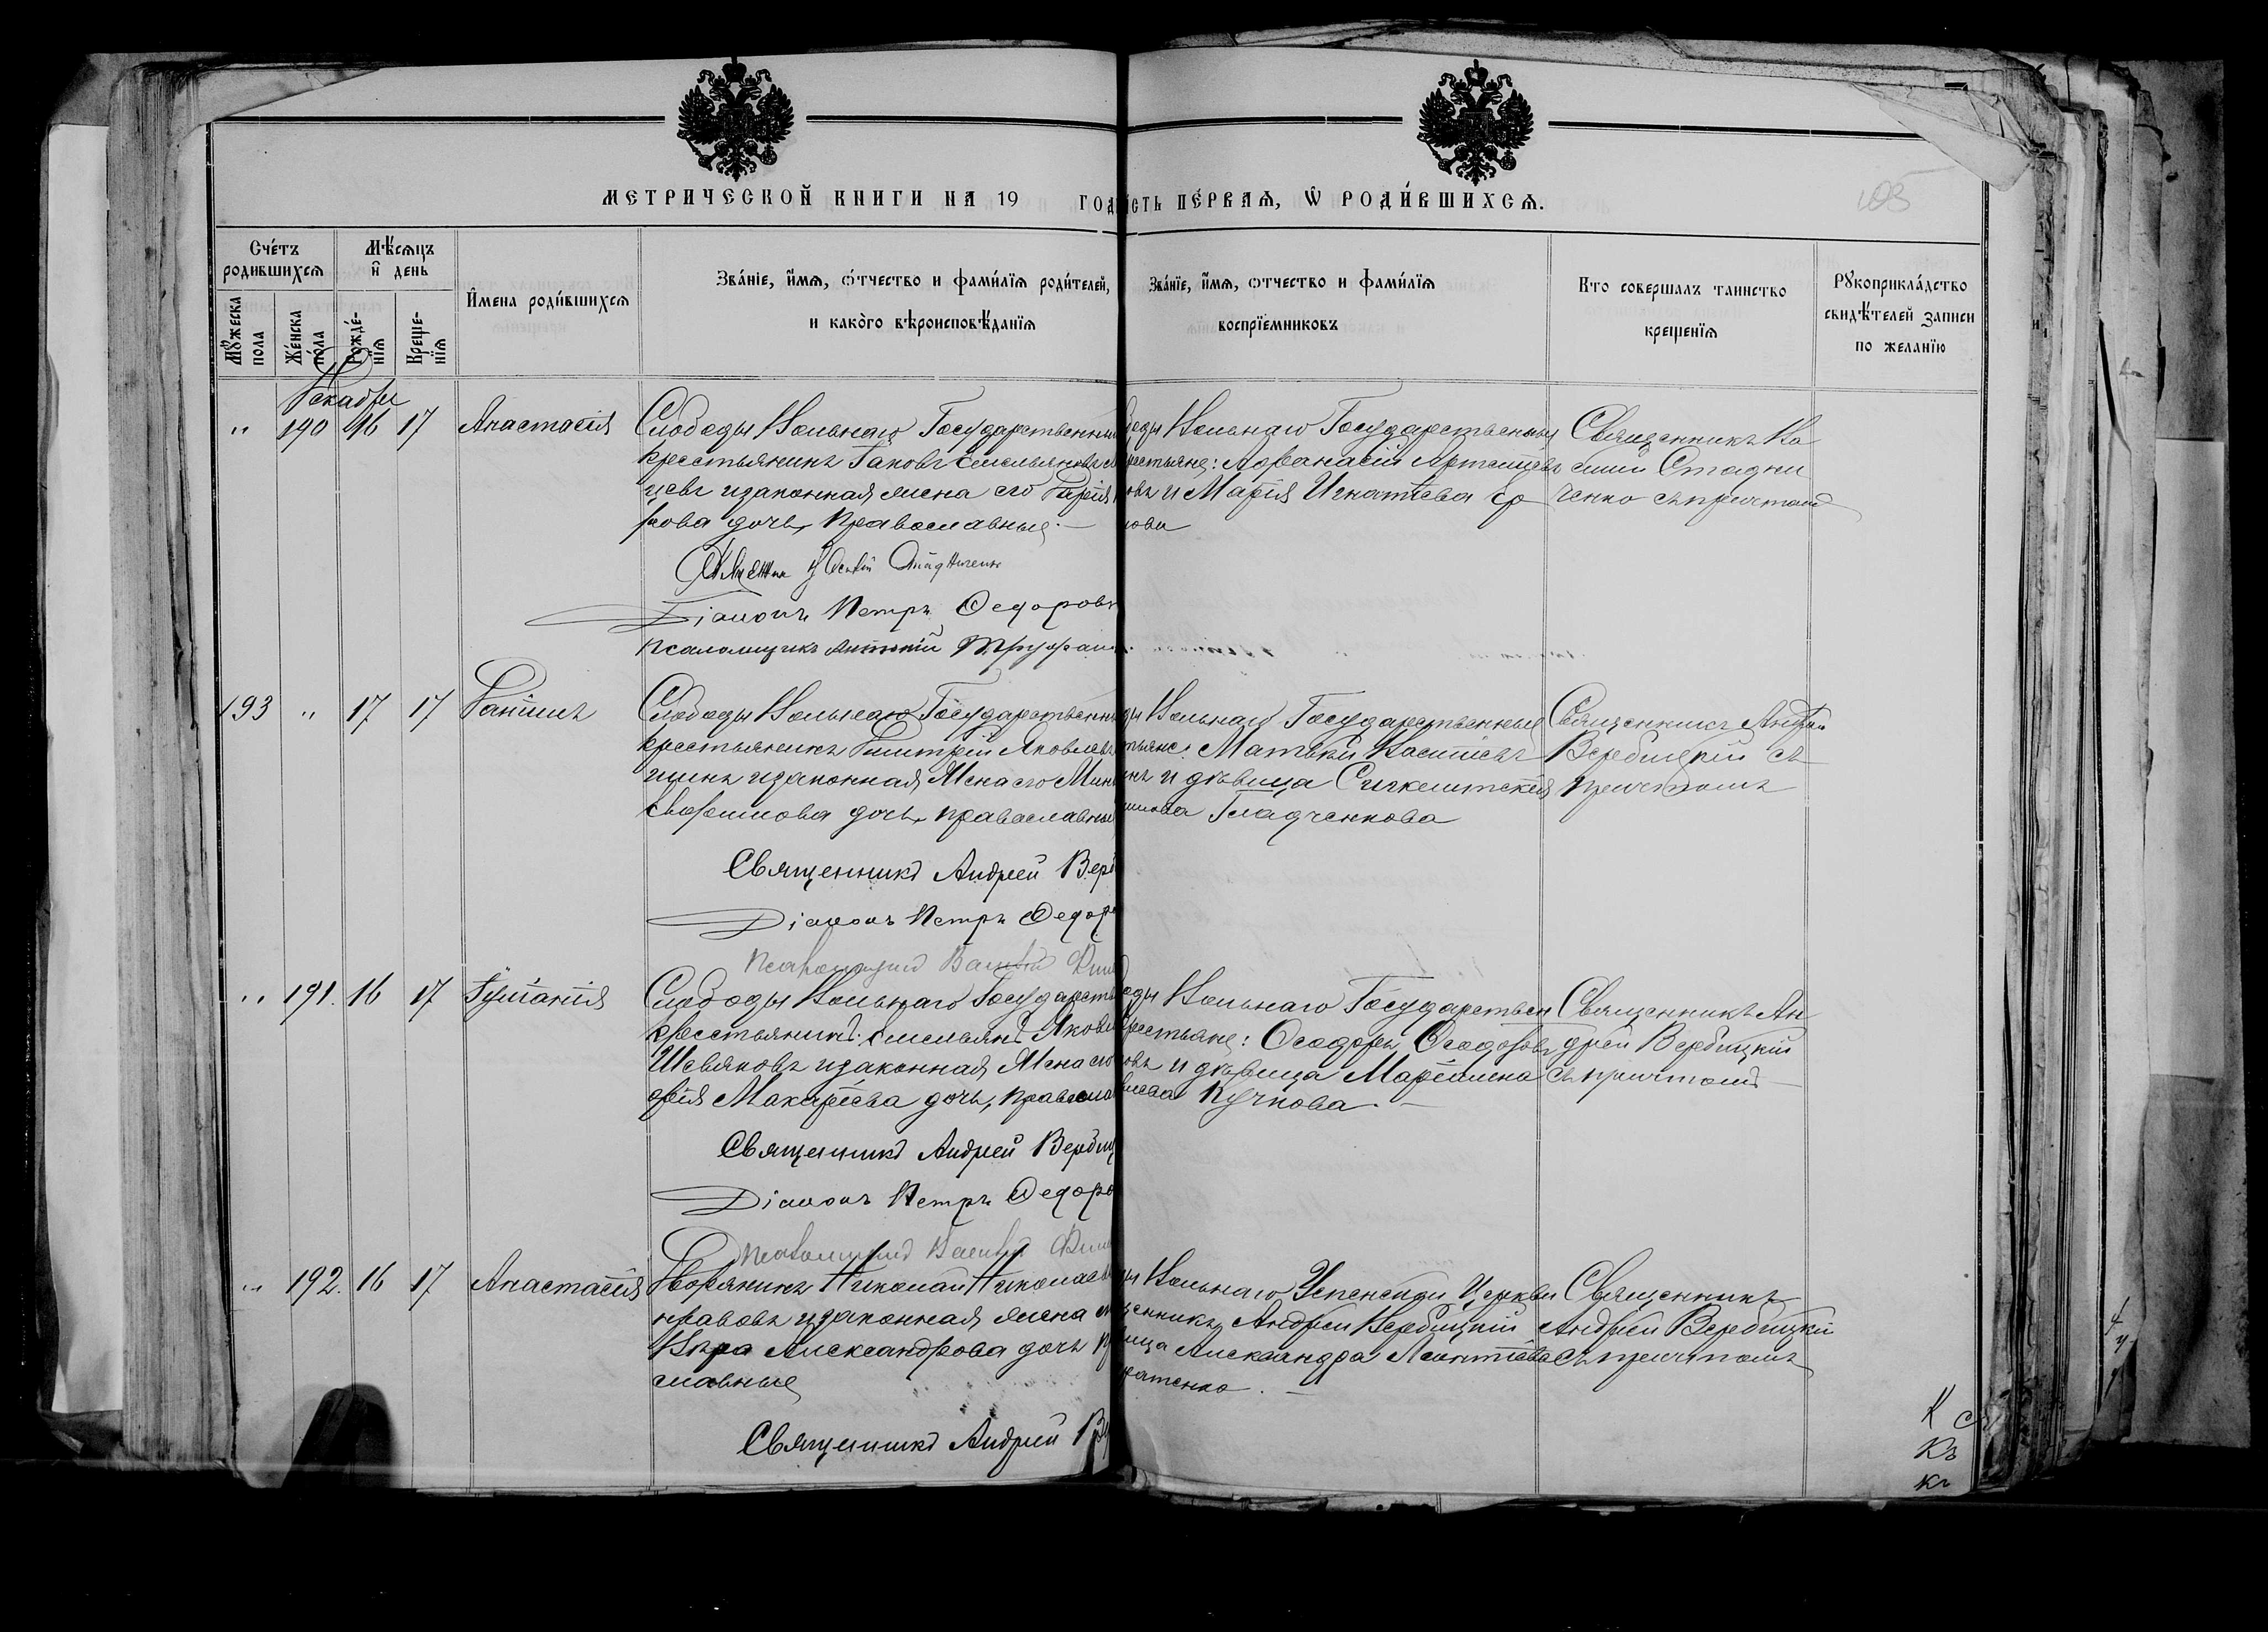 МЕТРИЧЕСКОЙ КНИГИ НА 19 ГОД
СТЬ ПЕ́РВАѦ, Ѡ҃ РОДИ́ВШИХСѦ.
105
Сче́тъ родившихсѧ
Мѣ́сѧцъ и҆ день
Мꙋ́жеска пола
Же́нска по́ла
Рожде́нїѧ
Креще́нїѧ
И҆мена роди́вшихсѧ
Зва́нїе, и҆́мѧ, ѻ҆́тчество и фами́лїѧ роди́телей,
и како́го вѣроисповѣ́данїѧ
Зва́нїе, и҆́мѧ, ѻтчество и фами́лїѧ
воспрїе́мниковъ
Кто совершалъ таинство
крещенїѧ
Рꙋкоприкла́дство
свидѣ́телей записи
по желанїю
Декабрь
" 190 16 17 Анастасія
Слободы Вольнаго Государственны
крестьянинъ Іаковъ Емельяновъ
цевъ и законная жена его Дарія
рова дочь, православные.
еды Вольнаго Государственные
рестьяне: Афанасій Артемьевъ
овъ и Марія Игнатіева
кова
Священникъ Ва
силий Стадни
ченко съ причтомъ
Священник Василій Стадниченко
Діаконъ Петръ Федоровъ
Псаломщикъ Антоній Труфан
193 " 17 17 Даніилъ
Слободы Вольнаго Государственн
крестьянинъ Димитрій Яковлевъ
и законная жена его
Евфимова дочь, православны
ды Вольнаго Государственные
тьяне: Матвѣй Васильевъ
и дѣвица Синклитикія
Гладченкова
Священникъ Андрей
Вербицкій съ
причтомъ
Священникъ Андрей Верб
Діаконъ Петръ Федор
Псаломщикъ Василій
" 191. 16 17 Іуліанія
Слободы Вольнаго Государств
крестьянинъ: Емельянъ Яковл
Шевяковъ и законная жена его
фія Макаріева дочь, правосла
оды Вольнаго Государствен
рестьяне: Ѳеодоръ Ѳеодоровъ
овъ и дѣвица Маріамна
Кучкова.
Священникъ Ан
дрей Вербицкій
съ причтомъ
Священникъ Андрей Вербиц
Діаконъ Петръ Федоро
Псаломщикъ Василій
" 192. 16 17 Анастасія
Дворянинъ Николай Николаев
нравовъ и законная жена
Вѣра Александрова дочь
славные
ды Вольнаго Успенской Церкви
щенникъ Андрей Вербицкій
вица Александра Леонтіева
ратенко.
Священникъ
Андрей Вербицкій
съ причтомъ
Священникъ Андрей Ве